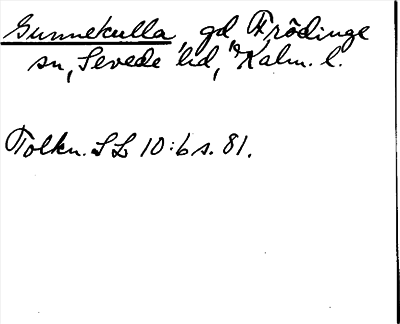 Gunnekulla, gd, Frödinge
sn, Sevede hd, Kalm. l.
Tolkn. SL 10:6 s. 81.